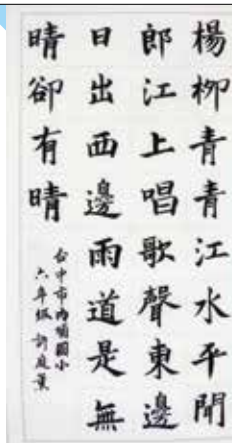 楊柳青青江水平聞
郎江上唱歌聲東邊
日出西邊雨道是無
晴卻有晴
台中市內埔國小
六年級 許庭